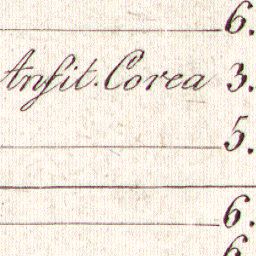 6.
Ansit. Corea 3.
5.
6.
6